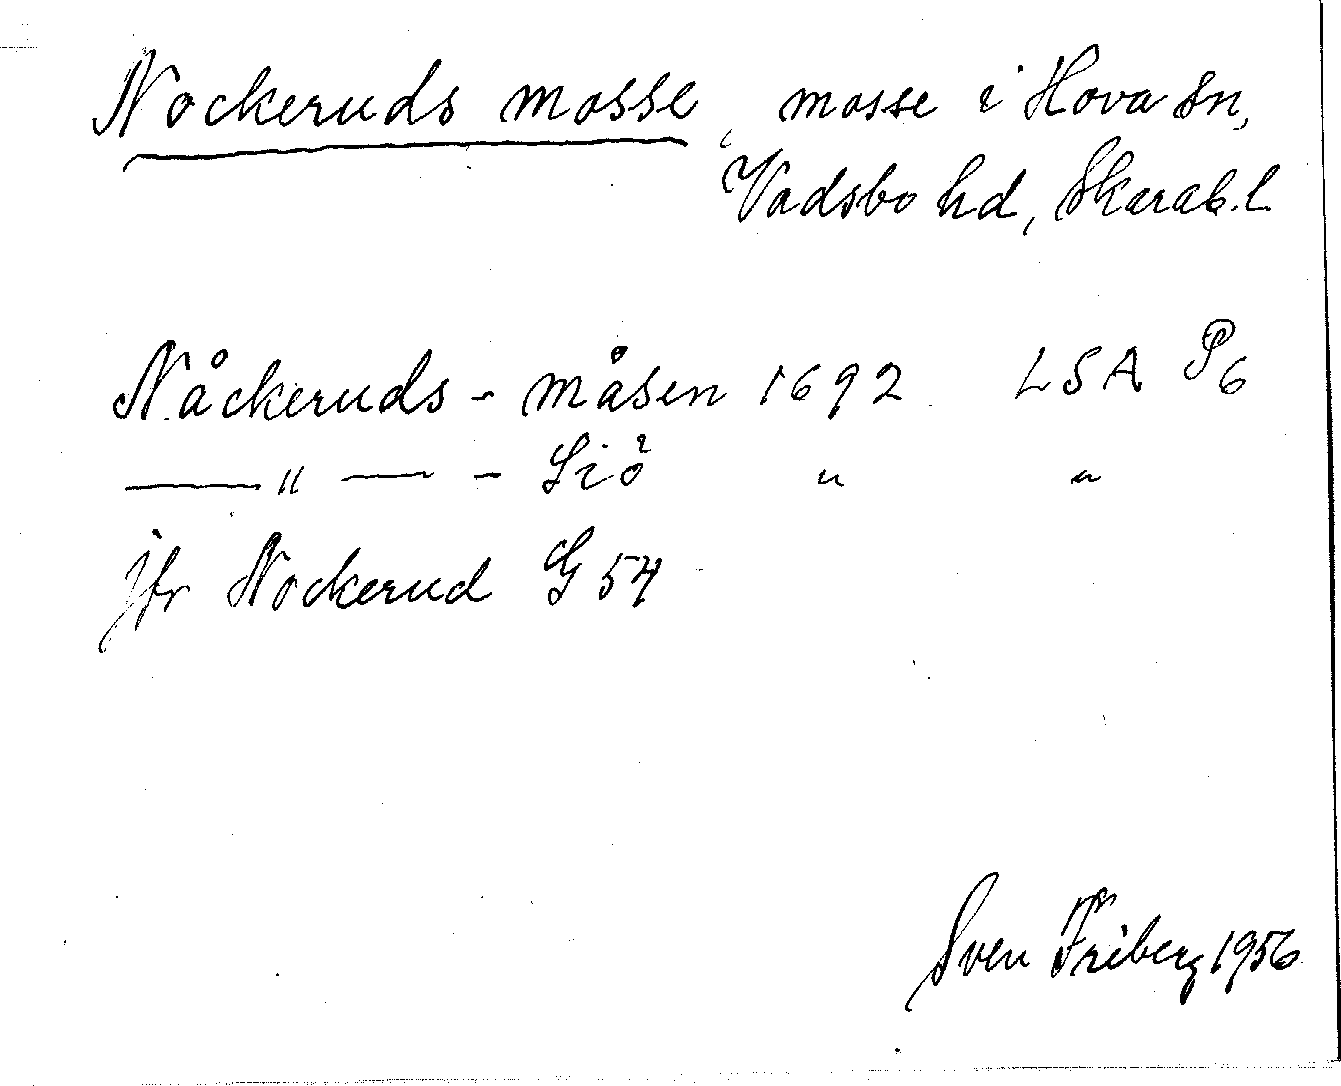 Nockeruds mosse, mosse i Hova sn,
Vadsbo hd, Skarab. l.
Nåckeruds - måsen 1692 LSA P6
— " — - Siö " "
jfr Nockerud G 54
Sven Friberg 1956